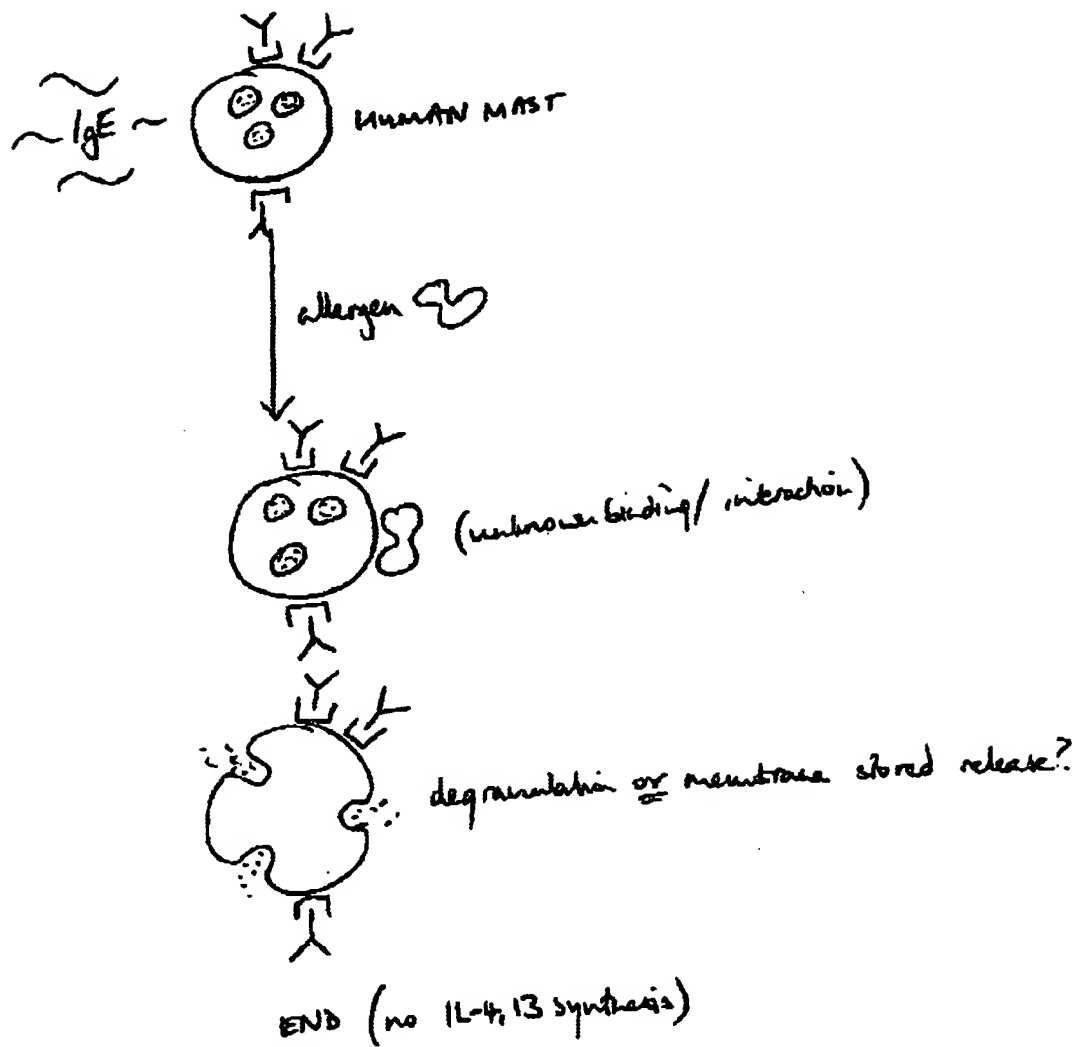 IgE
HUMAN MAST
allergen
(unknown binding/ interaction)
degranulation or membrane stored release?
END (no IL-4, 13 synthesis)